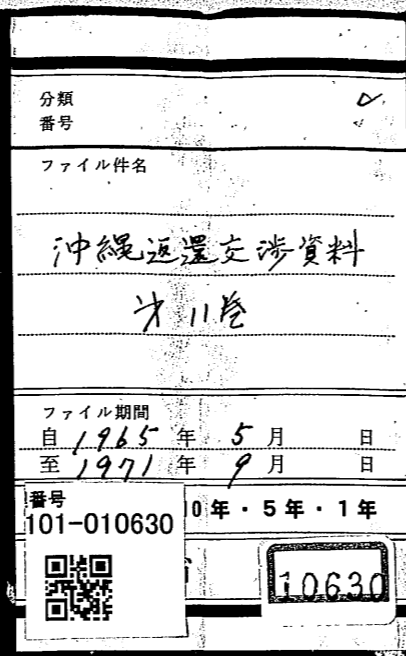 分類
番号
ファイル件名
沖縄返還交渉資料
才11巻
ファイル期間
自 1965 年 5 月 日
至 1971 年 9 月 日
番号
101-010630
10年・5年・1年
10630